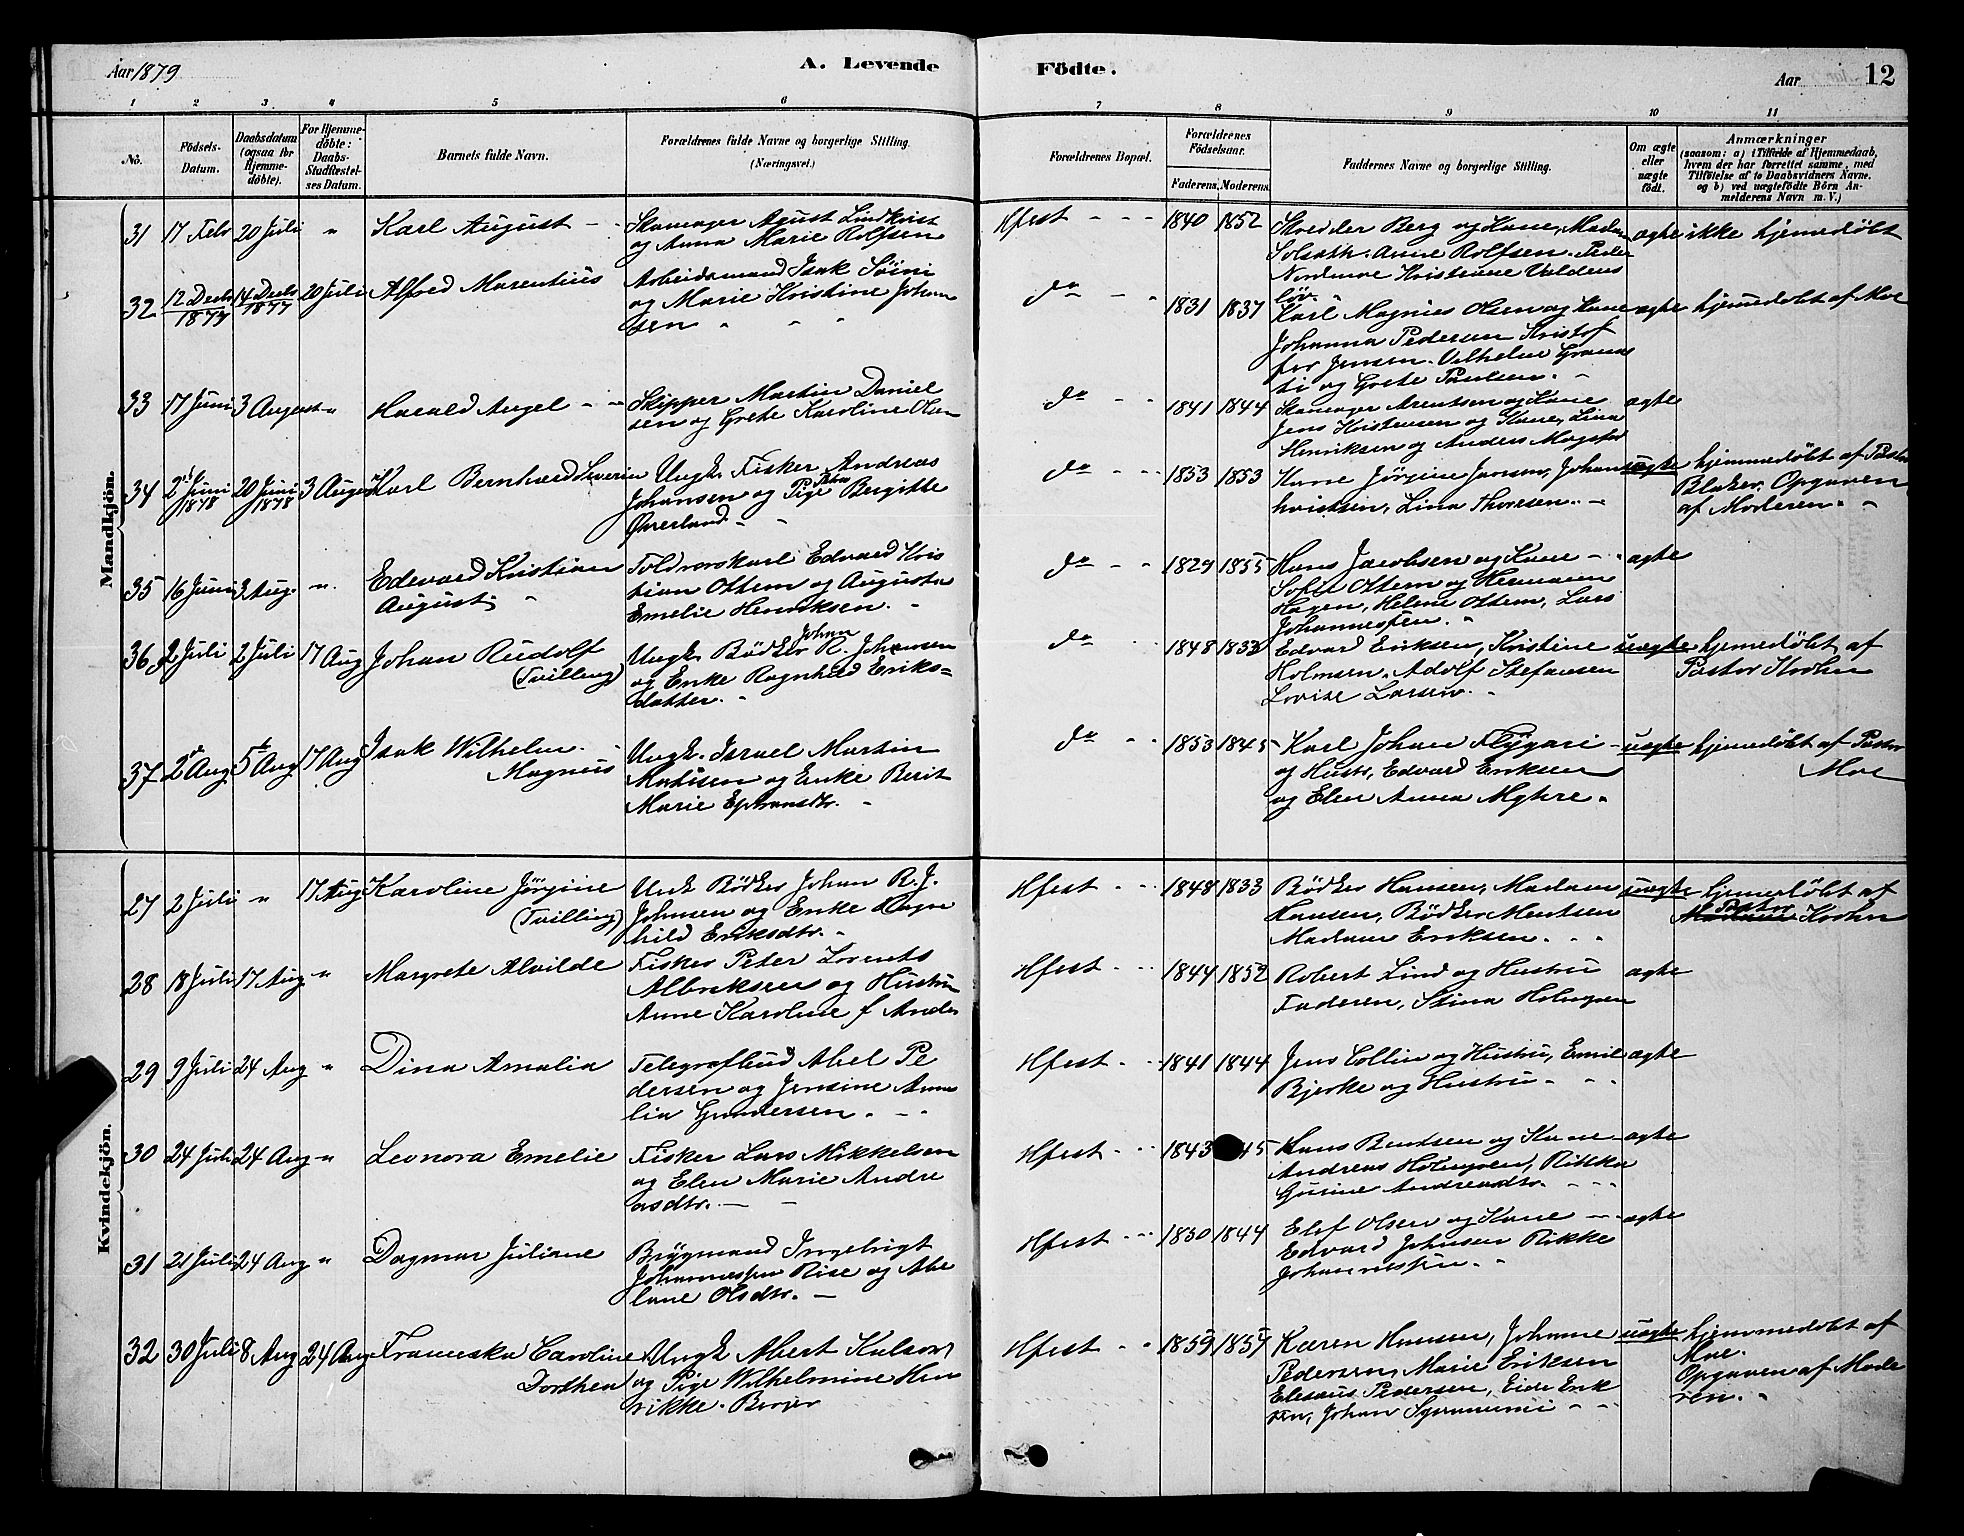 Aar 1879
A. Levende
Födte.
Aar
12
1 2 3 4 5 6 7 8 9 10 11
No.
Födsels-
Datum.
Daabsdatum
(ogsaa for
Hjemme-
döbte).
For Hjemme-
döbte:
Daabs-
Stadfæstel-
ses Datum.
Barnets fulde Navn.
Forældrenes fulde Navne og borgerlige Stilling.
(Næringsvei.)
Forældrenes Bopæl.
Forældrenes
Födselsaar.
Faderens. Moderens.
Faddernes Navne og borgerlige Stilling.
Om ægte
eller
uægte
födt.
Anmærkninger
(saasom: a) i Tilfælde af Hjemmedaab,
hvem der har forrettet samme, med
Tilföielse af to Daabsvidners Navne.
og b) ved uægtefödte Börn An-
melderens Navn m. V.)
Mandkjön.
31 17 Febr 20 Juli " Karl August
Skomager Agust Lindkvist
og Anna Marie Rolfsen
Hfest 1840 1852
Skredder Berg og Kone, Madm
Solsøth. Anne Rolfsen. Peder
Nordmoe Kristiane Valdens
løv.
ægte ikke hjemedøbt
32 12 Decbr 1877 14 Decbr 1877 20 Juli Alfred Marentius
Arbeidsmand Isak Søini
og Marie Kristine Johan
sen
do 1831 1837
Karl Magnus Olsen og Kone
Johanna Pedersen Kristof
fer Jensen. Vilhelm Grana
ti og Grete Paulsen.
ægte hjemmedøbt af Moe
33 17 Juni 3 August " Harald Angel
Skipper Martin Daniel
sen og Grete Karoline Olsen
do 1841 1844
Skomager Arentsen og Kone
Jens Kristensen og Kone, Lina
Henriksen og Anders Mogstad
ægte
34 2 Juni 1878 20 Juni 1878 3 August Karl Bernhard Severin
Ungk. Fisker Andreas
Johansen og Pige Bergitte
Overland
do 1853 1853
Kone Jörgine Jansen, Johan
Lina Thoresen.
uægte hjemmedøbt af Pastor
Blaker. Opgaven
af Moderen.
35 16 Juni 3 Aug. " Edevard Kristian
August
Toldrorskarl Edvard Kris
tian Ottem og Augusta
Emelie Henriksen.
do 1829 1855
Hans Jacobsen og Kone
Sofie Ottem og Hermann
Hagen, Helene Ottem, Lars
Johannessen.
ægte
36 2 Juli 2 Juli 17 Aug Johan Rudolf
(Tvilling)
Ungk. Bödker Johan R. Johnsen
og Enke Ragnhild Eriks-
datter.
do 1848 1833
Edvard Eriksen, Kristine
Holmsen. Adolf Stefansen
Lovise Larsen.
uægte hjemedøbt af
Pastor Krohn
37 2 Aug. 5 Aug 17 Aug Isak Wilhelm
Magnus
Ungk. Israel Martin
Matisen og Enke Berit
Marie Ephramsdtr.
do 1853 1845
Karl Johan Flygari
og Hustr, Edvard Eriksen
og Elen Anna Myhre.
uægte hjemedøbt af Pastor
Moe
Kvindekjön.
27 2 Juli " 17 Aug. Karoline Jörgine
(Tvilling)
Unk Bödker Johan R. J.
Johnsen og Enke Ragn
hild Eriksdtr.
Hfest 1848 1833
Bödker Hansen, Madam
Hansen, Bödker Mentsen
Madam Eriksen.
uægte hjemedøbt af
Pastor Krohn
28 18 Juli 17 Aug " Margrete Alvilde
Fisker Peter Lorents
Albriksen og Hustru
Anne Karoline f Anders
Hfest 1844 1852
Robert Lind og Hustru
Faderen, Stina Holmgren
ægte
29 9 Juli 24 Aug " Dina Amalia
Telegrafbud Abel Pe
dersen og Jensine Ama
lia Gundersen.
Hfest 1841 1844
Jens Collin og Hustru, Emil
Bjerke og Hustru
ægte
30 24 Juli 24 Aug " Leonora Emelie
Fisker Lars Mikkelsen
og Elen Marie Andre
asdtr.
Hfest 1843 45
Hans Bentsen og Kone
Andreas Holmgren, Rikka
Gurine Andreasdtr.
ægte
31 21 Juli 24 Aug " Dagmar Juliane
Brygmand Ingebrigt
Johannessen Rise og Abe
lone Olsdtr.
Hfest 1830 1844
Elef Olsen og Kone
Edvard Johnsen Rikke
Johannessen.
ægte
32 30 Juli 8 Aug 24 Aug. Franciska Caroline
Dorthea
Ungk Albert Karlson
og Pige Wilhelmine Hen
rikke. Berger
Hfest 1859 1857
Karen Hansen, Johanne
Pedersen, Marie Eriksen
Elesæus Pedersen, Eide Erik
sen, Johan
uægte hjemmedøbt af
Moe.
Opgaven af Mode
ren.